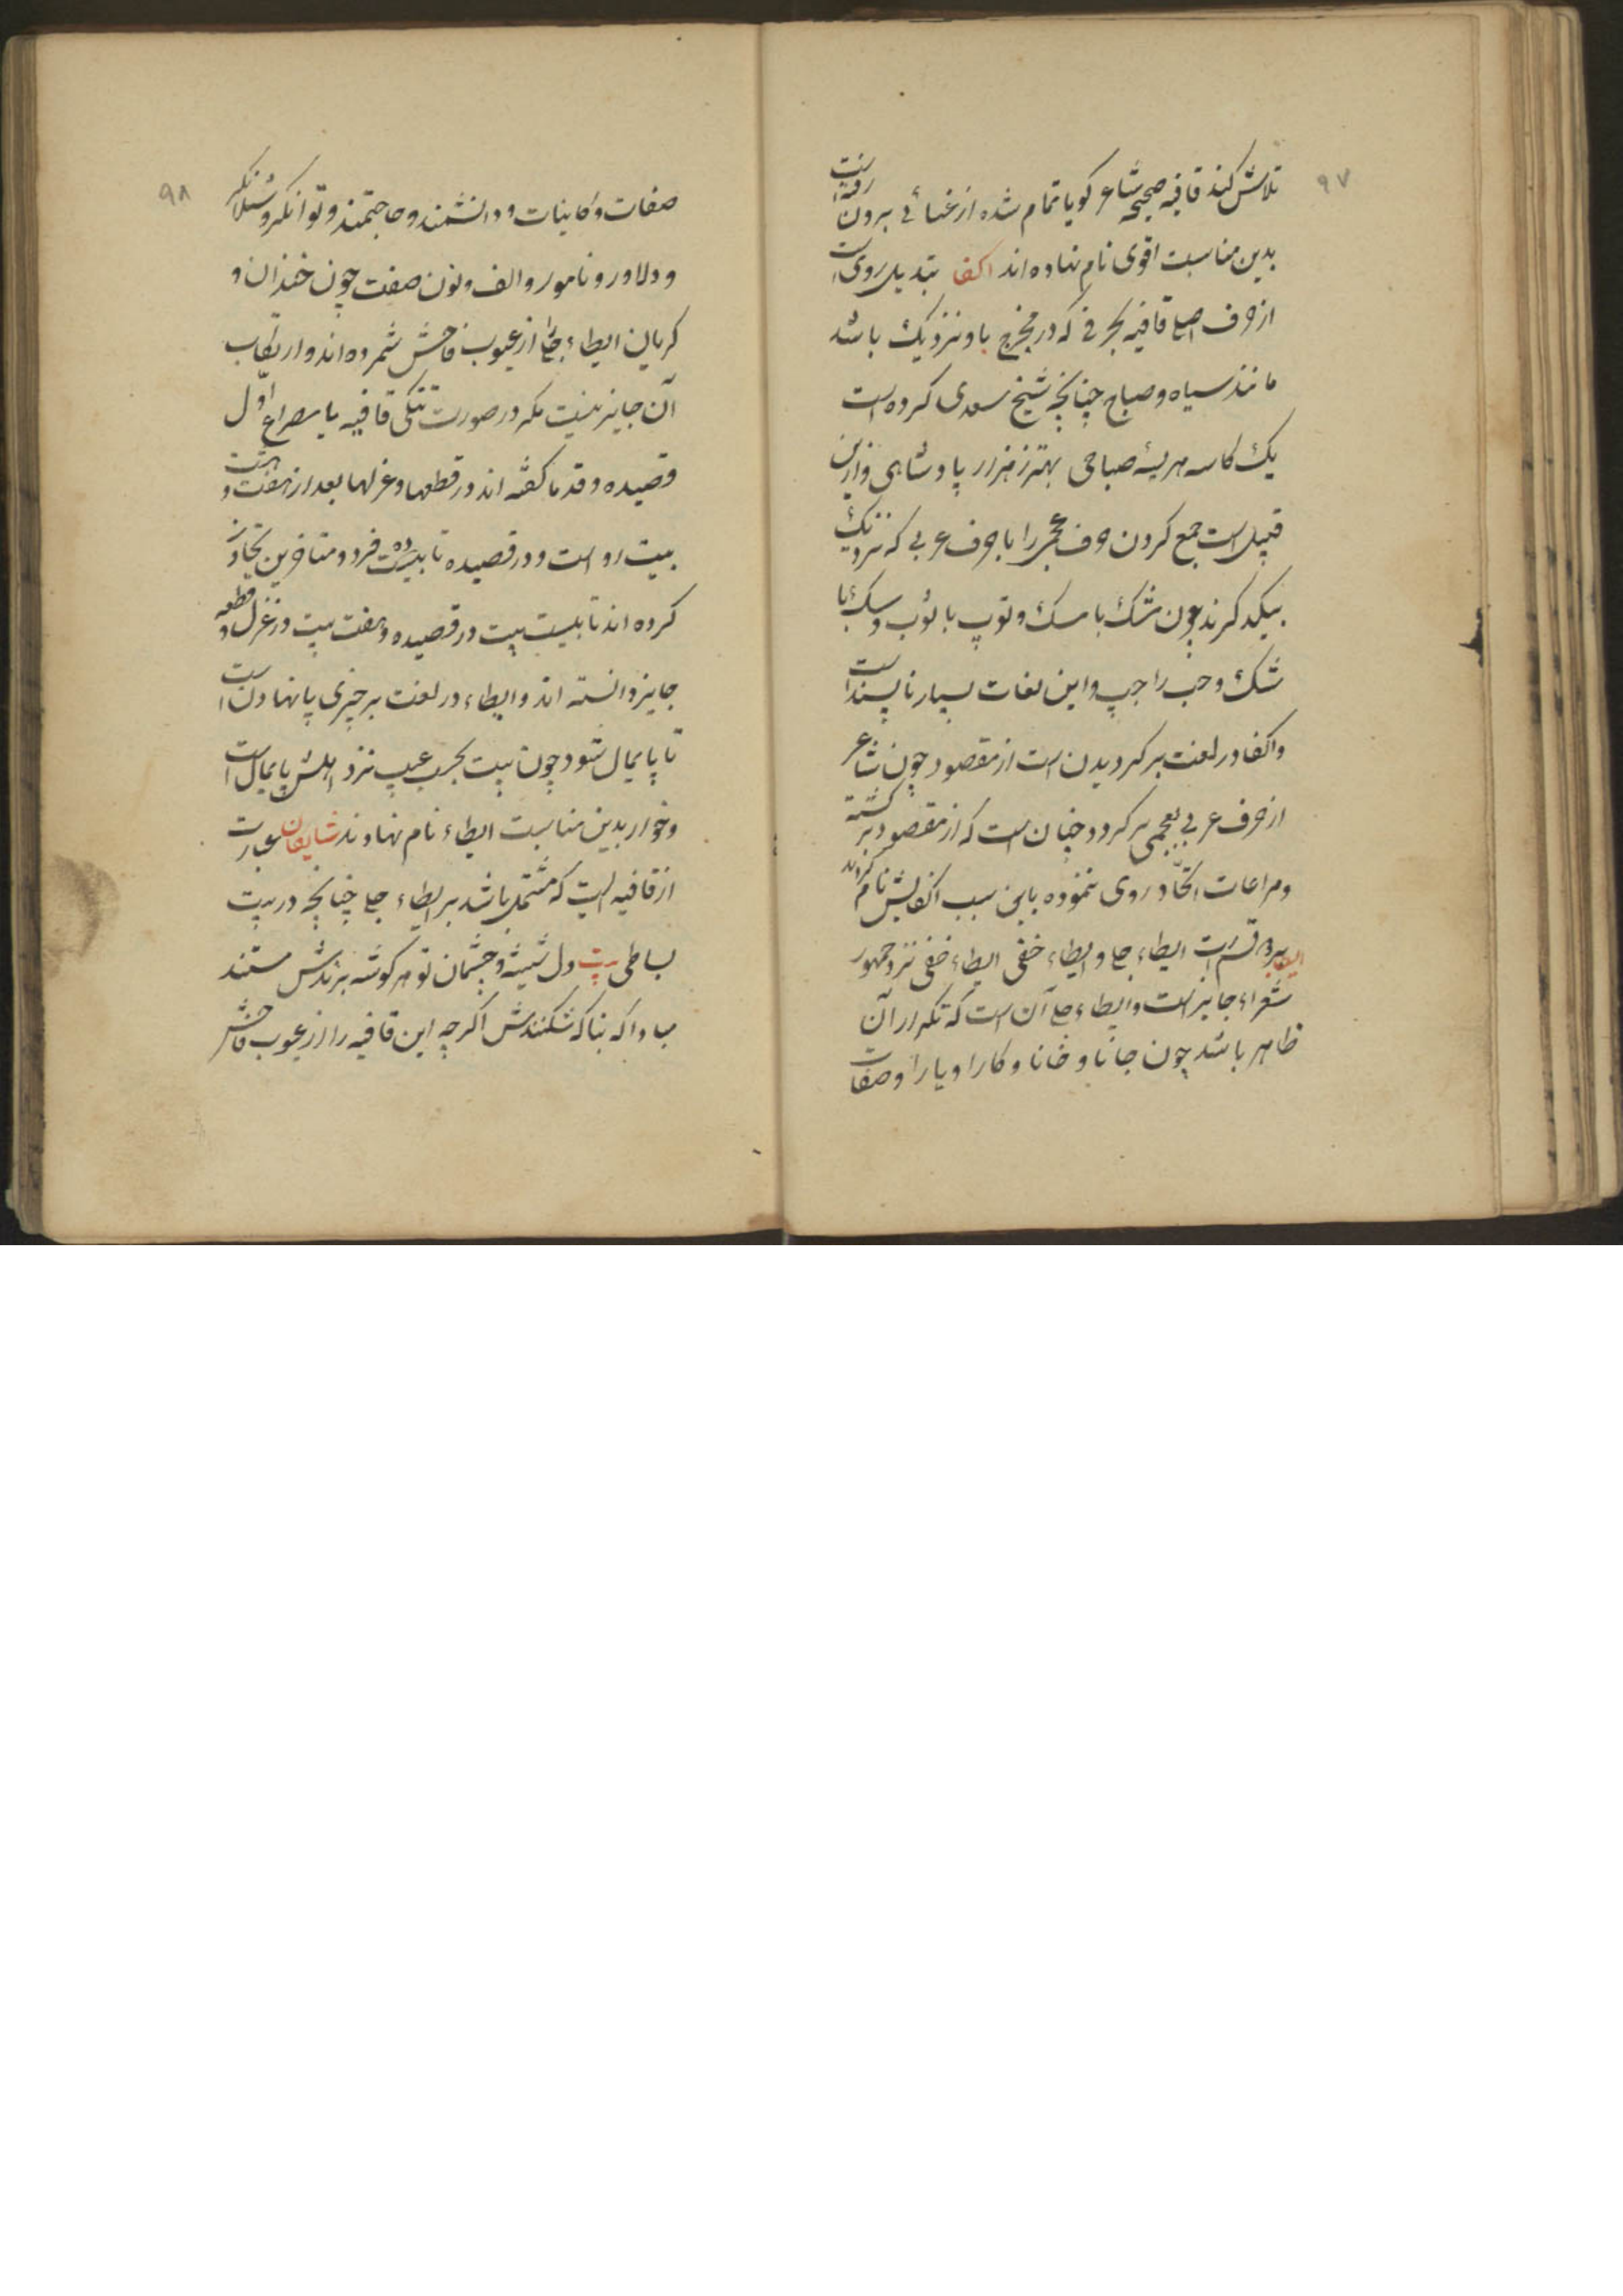 ۹۷
تلاش کند قافیه صحیحه شاعر کویا تمام شده از غنائی برون رفته است
بدین مناسبت اقوی نام نهاده اند اکفا تبدیل روی است
از حرف اصلی قافیه بحرفی که در مخرج باو نزدیک باشد
مانند سیاه و صباح چنانچه شیخ سعدی کرده است
یک کاسه هریسهٔ صباحی بهتر ز هزار پادشاهی و ازین
قبیل است جمع کردن حرف عجمی را با حرف عربی که نزدیک
بیکدکرند چون شک با سک و توپ با توب و سک با
شک و حب را چپ و این لغات بسیار ناپسند است
و اکفا در لغت برکردیدن است از مقصود چون شاعر
از حرف عربی بعجمی برکردد چنان است که از مقصود برکشته
و مراعات اتحاد روی ننموده باین سبب اکفایش نام کرده اند
ایطا بر دو قسم است ایطاء جلی و ایطاء خفی ایطاء خفی نزد جمهور
شعراء جایز است و ایطاء جلی آن است که تکرار آن
ظاهر باشد چون جانا و خانا و کارا و یارا و صفات
۹۸
صفات و کاینات و دانشمند و حاجتمند و توانکر و
و دلاور و نامور و الف و نون صفت چون خندان و
کریان ایطاء جلی از عیوب فاحش شمرده اند و ارتکاب
آن جایز نیست مکر در صورت تنکی قافیه یا مصراع اول
قصیده و قدما کفته اند در قطعها و غزلها بعد از هفت و هشت
بیت رواست و در قصیده تا بیت فرد و متاخرین تجاوز
کرده اند تا بیست بیت در قصیده و هفت بیت در غزل و قطعه
جایز دانسته اند و ایطاء در لغت بر چیزی پا نهادن است
تا پایمال شود چون بیت بحسب عیب نزد اهلش پایمال است
و خوار بدین مناسبت ایطاء نام نهادند شایکان عبارت
از قافیه ایست که مشتمل باشد بر ایطاء جلی چنانچه در بیت
بساطی بیت دل شیشه و چشمان تو هر کوشه برندش مستند
مبادا که بناکه شکنندش اکرچه این قافیه را از عیوب فاحش